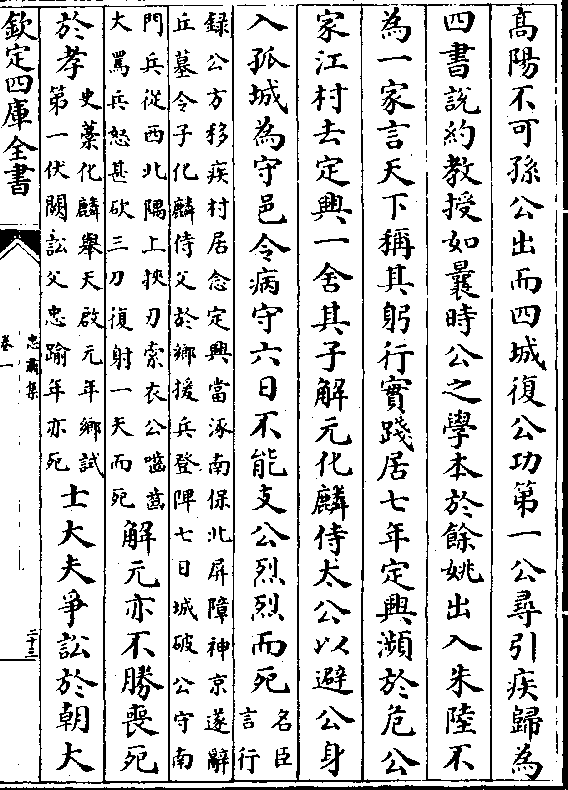 高陽不可孫公出而四城復公功第一公尋引疾歸為
四書說約教授如曩時公之學本於餘姚出入朱陸不
為一家言天下稱其躬行實踐居七年定興瀕於危公
家江村去定興一舍其子解元化麟侍太公以避公身
入孤城為守邑令病守六日不能支公烈烈而死
名臣
言行
録公方移疾村居念定興當涿南保北屏障神京遂辭
丘墓令子化麟侍父於鄉援兵登陴七日城破公守南
門兵從西北隅上挾刃索衣公嚙齒
大罵兵怒甚砍三刀復射一矢而死
解元亦不勝喪死
於孝
史藁化麟舉天啟元年鄉試
第一伏闕訟父忠踰年亦死
士大夫爭訟於朝大
欽定四庫全書
忠肅集
卷一
二十三